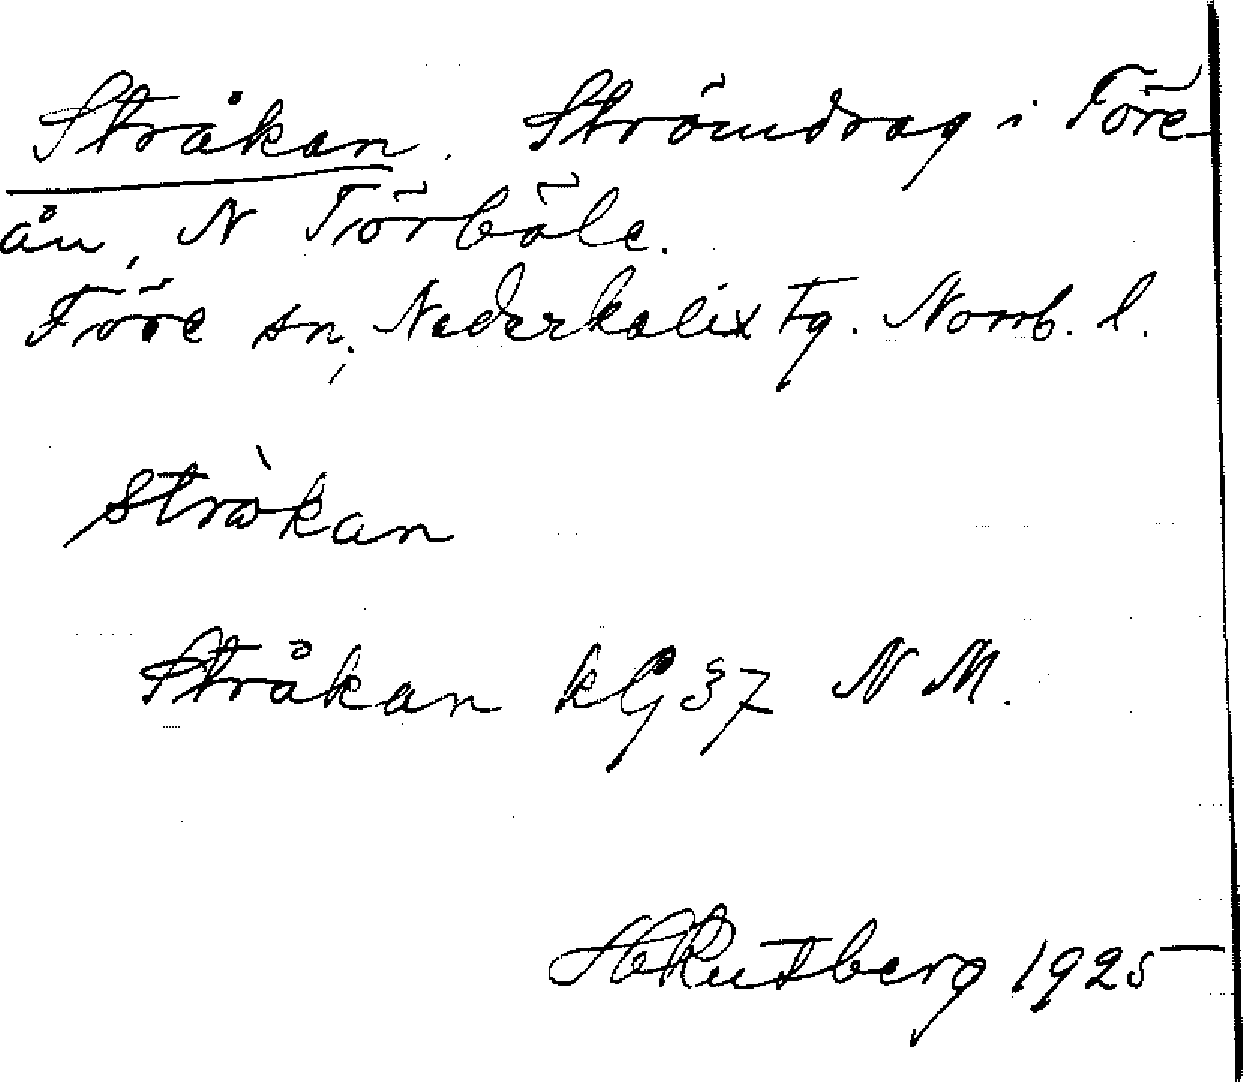 Stråkan. Strömdrag i Töre
ån, N Törböle.
Töre sn, Nederkalix tg. Norrb. l.
stràkan
Stråkan kG 37 N M.
H Rutberg 1925